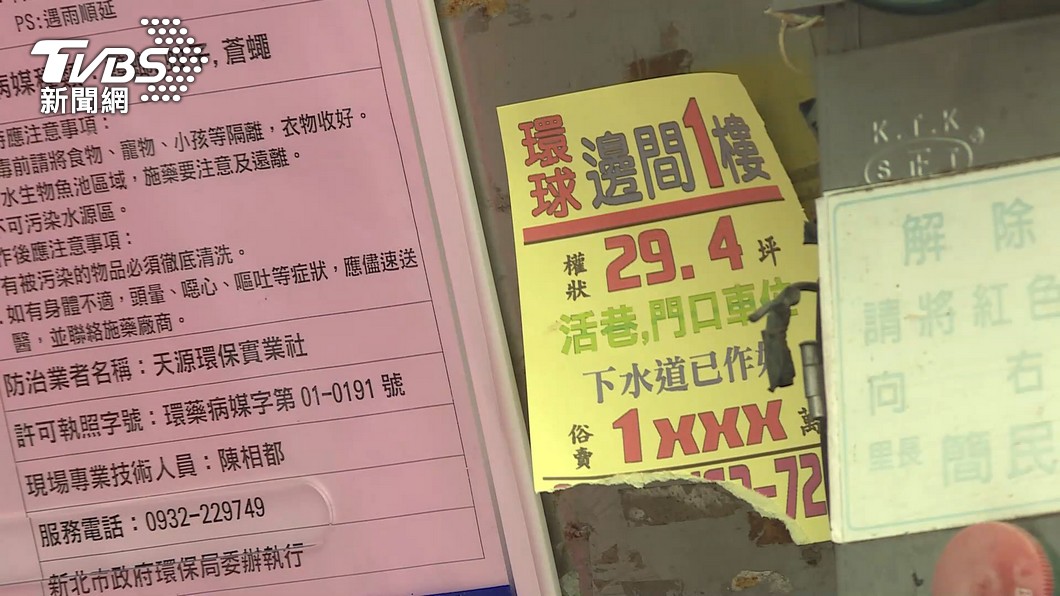 PS:遇雨順延
TVBS
新聞網
, 蒼蠅
時應注意事項：
毒前請將食物、寵物、小孩等隔離，衣物收好。
水生物魚池區域，施藥要注意及遠離。
不可污染水源區。
作後應注意事項：
有被污染的物品必須徹底清洗。
如有身體不適，頭暈、噁心、嘔吐等症狀，應儘速送
醫，並聯絡施藥廠商。
防治業者名稱：天源環保實業社
許可執照字號：環藥病媒字第 01-0191 號
現場專業技術人員：陳相都
服務電話：0932-229749
新北市政府環保局委辦執行
環球 邊間1樓
權狀 29.4 坪
活巷,門口車位
下水道已作好
俗賣 1xxx 萬
-72
K.T.K
解 除
請將紅色
向 右
里長 簡民